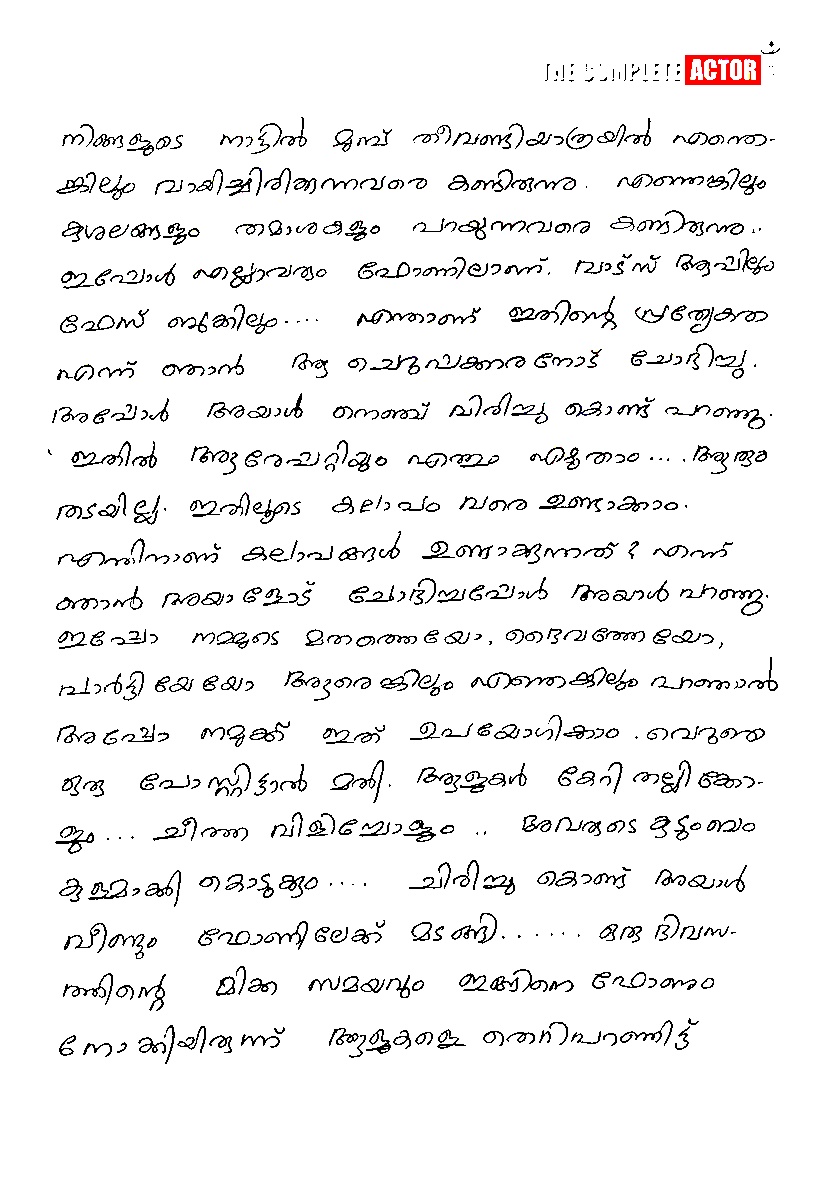 THE COMPLETE ACTOR
നിങ്ങളുടെ നാട്ടിൽ മുമ്പ് തീവണ്ടിയാത്രയിൽ എന്തെ-
ങ്കിലും വായിച്ചിരിക്കുന്നവരെ കണ്ടിരുന്നു. എന്തെങ്കിലും
കുശലങ്ങളും തമാശകളും പറയുന്നവരെ കണ്ടിരുന്നു..
ഇപ്പോൾ എല്ലാവരും ഫോണിലാണ്. വാട്സ് ആപ്പിലും
ഫേസ് ബുക്കിലും.... എന്താണ് ഇതിന്റെ പ്രത്യേകത
എന്ന് ഞാൻ ആ ചെറുപ്പക്കാരനോട് ചോദിച്ചു.
അപ്പോൾ അയാൾ നെഞ്ച് വിരിച്ചു കൊണ്ട് പറഞ്ഞു.
' ഇതിൽ ആരേപറ്റിയും എന്തും എഴുതാം.... ആരും
തടയില്ല. ഇതിലൂടെ കലാപം വരെ ഉണ്ടാക്കാം.
എന്തിനാണ് കലാപങ്ങൾ ഉണ്ടാക്കുന്നത്? എന്ന്
ഞാൻ അയാളോട് ചോദിച്ചപ്പോൾ അയാൾ പറഞ്ഞു.
ഇപ്പോ നമ്മുടെ മതത്തെയോ, ദൈവത്തേയോ,
പാർട്ടിയേയോ ആരെങ്കിലും എന്തെങ്കിലും പറഞ്ഞാൽ
അപ്പോ നമുക്ക് ഇത് ഉപയോഗിക്കാം. വെറുതെ
ഒരു പോസ്റ്റിട്ടാൽ മതി. ആളുകൾ കേറി തല്ലിക്കോ-
ളും... ചീത്ത വിളിച്ചോളും.. അവരുടെ കുടുംബം
കുളമാക്കി കൊടുക്കും.... ചിരിച്ചു കൊണ്ട് അയാൾ
വീണ്ടും ഫോണിലേക്ക് മടങ്ങി....... ഒരു ദിവസ-
ത്തിന്റെ മിക്ക സമയവും ഇങ്ങിനെ ഫോണും
നോക്കിയിരുന്ന് ആളുകളെ തെറിപറഞ്ഞിട്ട്